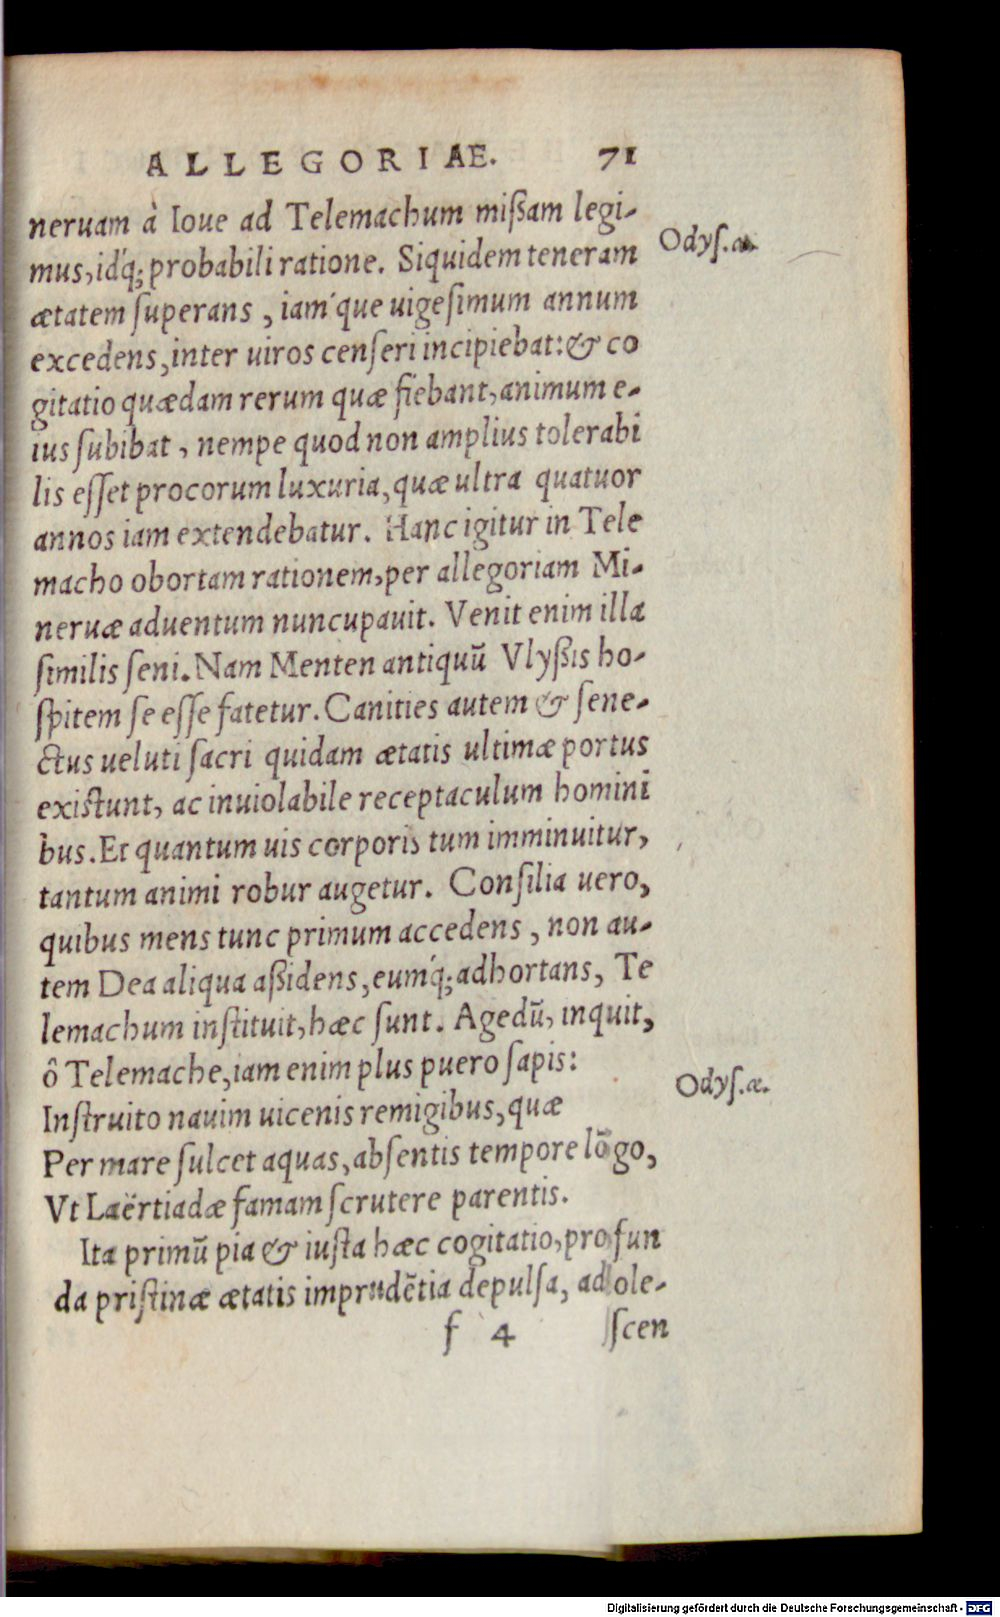 ALLEGORIAE. 71
neruam à Ioue ad Telemachum mißam legi-
Odyſ.æ.
mus, idq́; probabili ratione. Siquidem teneram
ætatem ſuperans, iaḿque uigeſimum annum
excedens, inter uiros cenſeri incipiebat: & co
gitatio quædam rerum quæ fiebant, animum e-
ius ſubibat, nempe quod non amplius tolerabi
lis eſſet procorum luxuria, quæ ultra quatuor
annos iam extendebatur. Hanc igitur in Tele
macho obortam rationem, per allegoriam Mi-
neruæ aduentum nuncupauit. Venit enim illa
ſimilis ſeni. Nam Menten antiquū Vlyßis ho-
ſpitem ſe eſſe fatetur. Canities autem & ſene-
ctus ueluti ſacri quidam ætatis ultimæ portus
exiſtunt, ac inuiolabile receptaculum homini
bus. Et quantum uis corporis tum imminuitur,
tantum animi robur augetur. Conſilia uero,
quibus mens tunc primum accedens, non au-
tem Dea aliqua aßidens, eumq́; adhortans, Te
lemachum inſtituit, hæc ſunt. Agedū, inquit,
ô Telemache, iam enim plus puero ſapis:
Odyſ.æ.
Inſtruito nauim uicenis remigibus, quæ
Per mare ſulcet aquas, abſentis tempore lōgo,
Vt Laërtiadæ famam ſcrutere parentis.
Ita primū pia & iuſta hæc cogitatio, profun
da priſtinæ ætatis imprudētia depulſa, adole-
f 4 ſcen
Digitalisierung gefördert durch die Deutsche Forschungsgemeinschaft - DFG